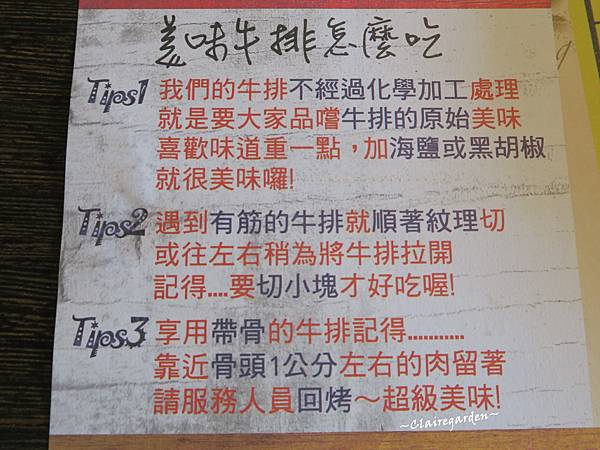 美味牛排怎麼吃
Tips1 我們的牛排不經過化學加工處理
就是要大家品嚐牛排的原始美味
喜歡味道重一點，加海鹽或黑胡椒
就很美味囉!
Tips2 遇到有筋的牛排就順著紋理切
或往左右稍為將牛排拉開
記得....要切小塊才好吃喔!
Tips3 享用帶骨的牛排記得...........
靠近骨頭1公分左右的肉留著
請服務人員回烤～超級美味!
~Clairegarden~